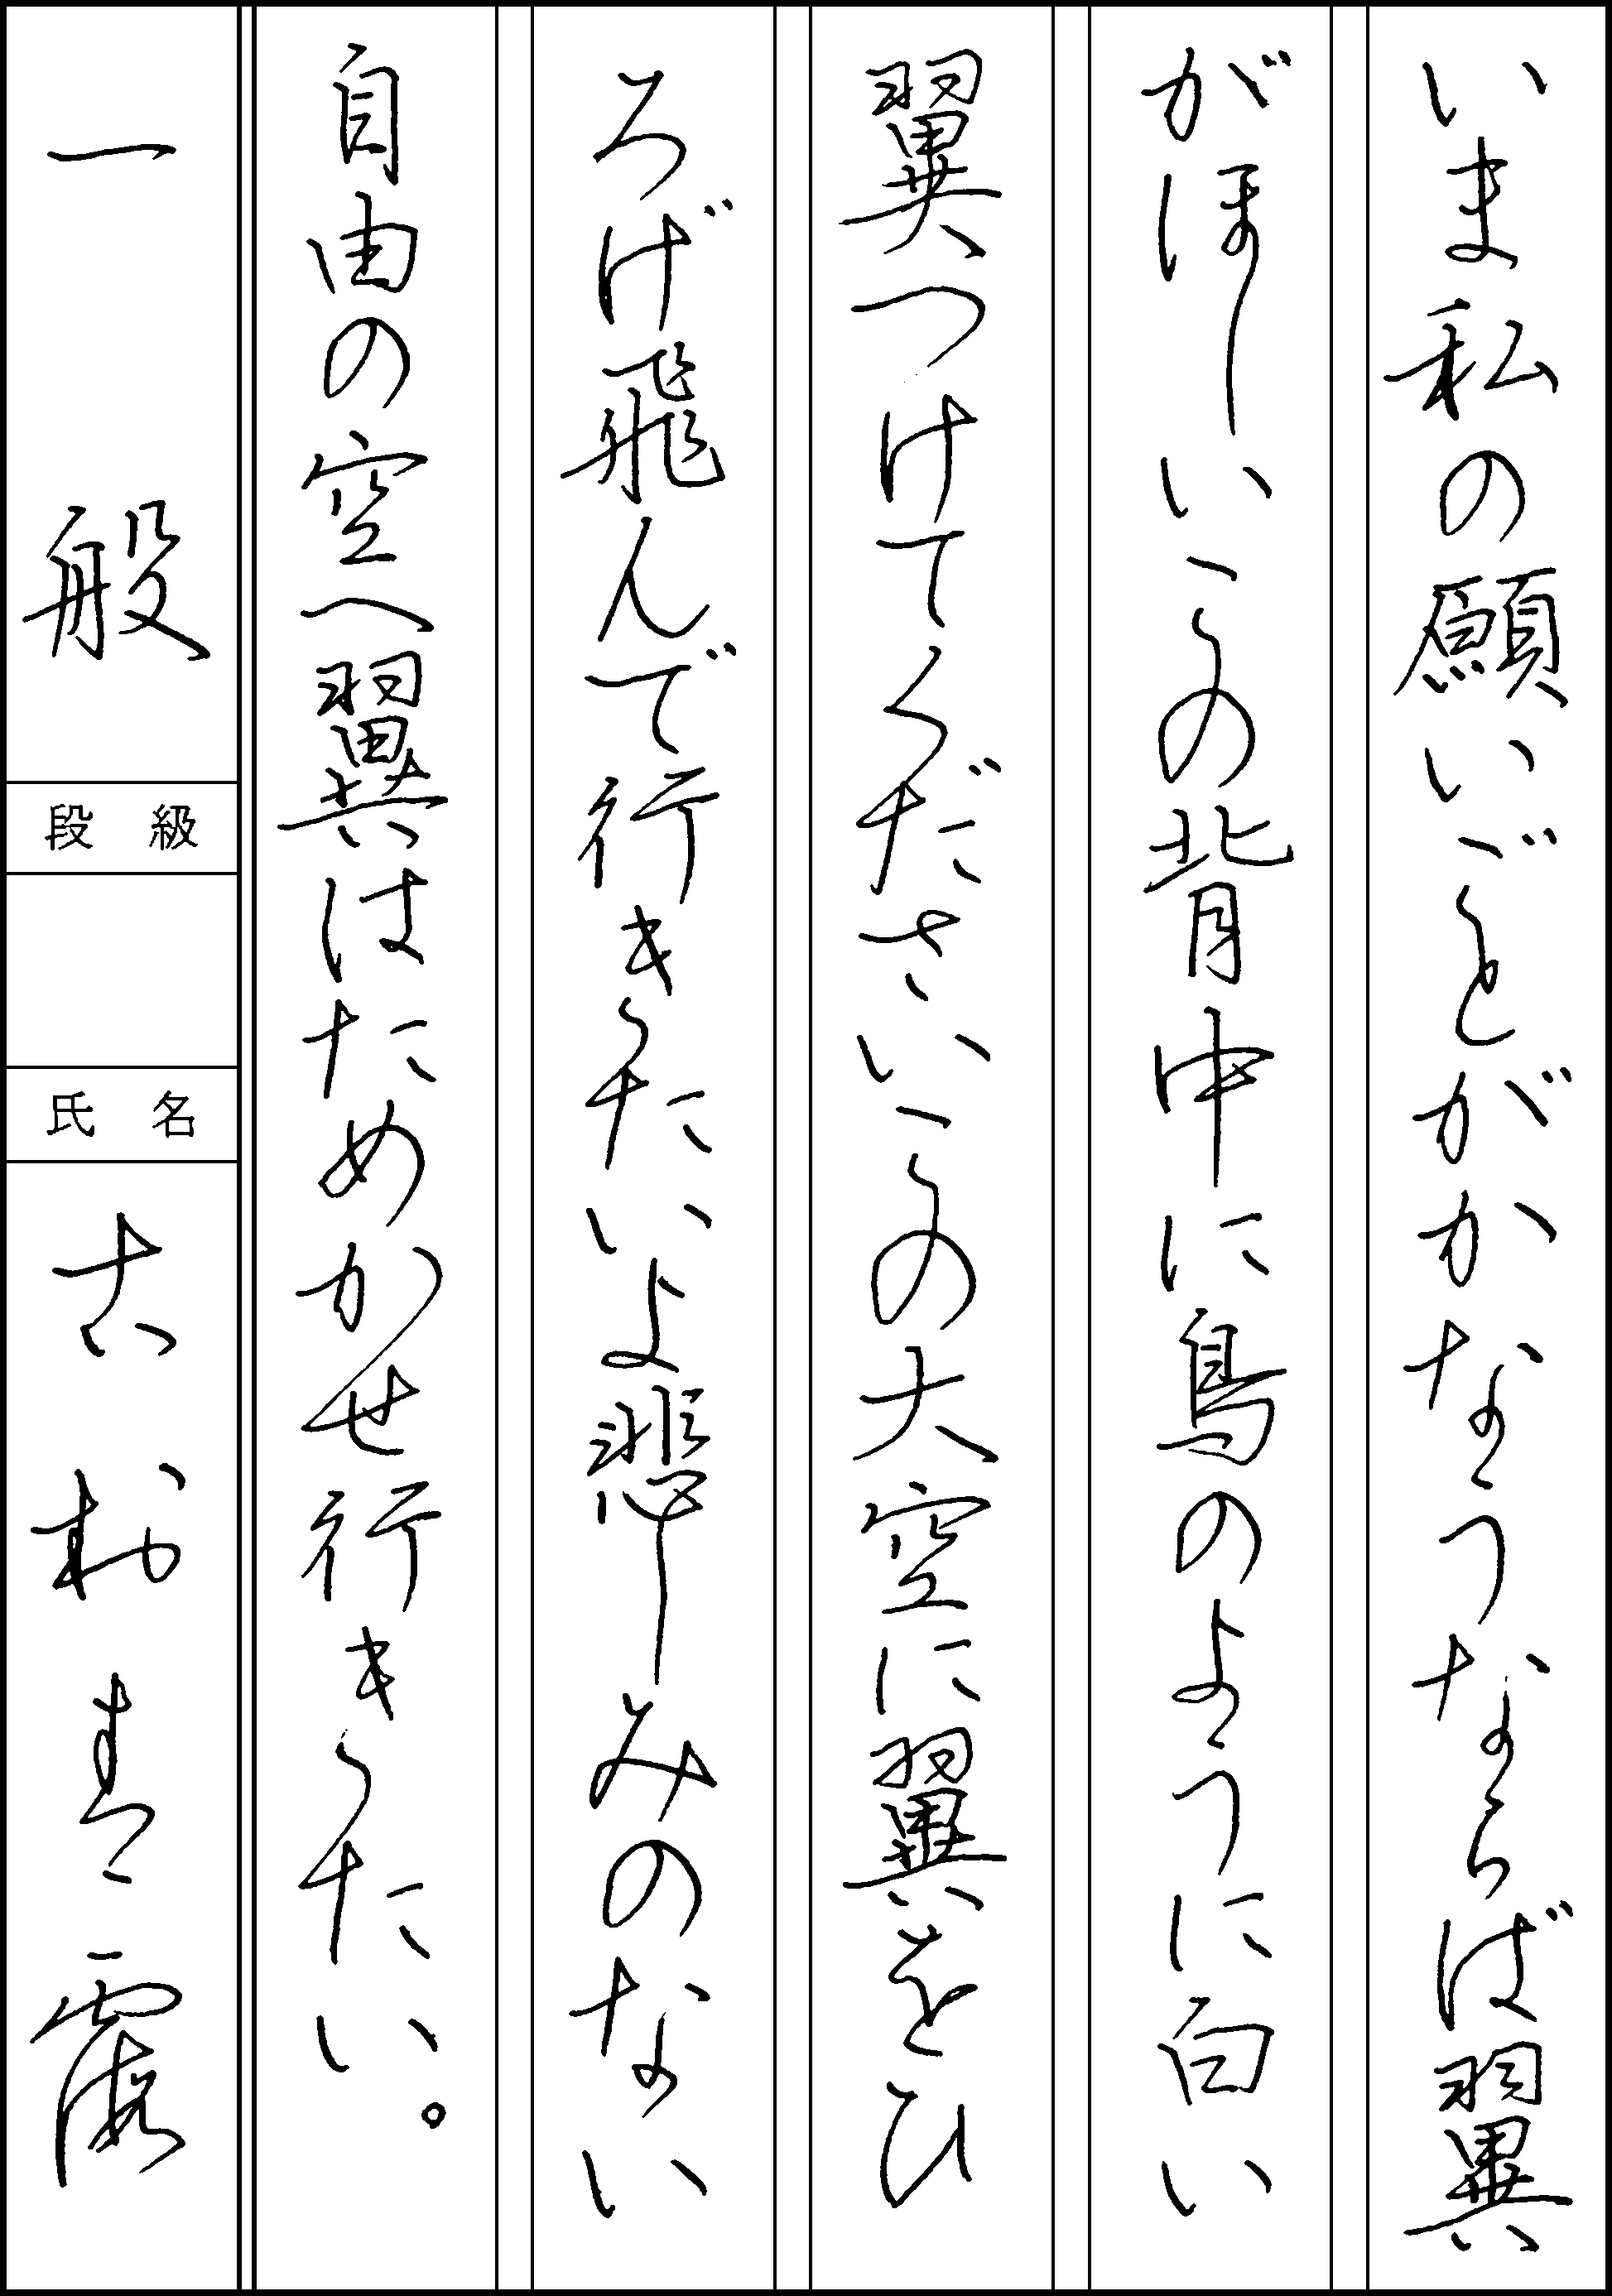 いま私の願いごとがかなうならば翼
がほしいこの背中に鳥のように白い
翼つけてくださいこの大空に翼をひ
ろげ飛んで行きたいよ悲しみのない
自由の空へ翼はためかせ行きたい。
一般
段級
氏名